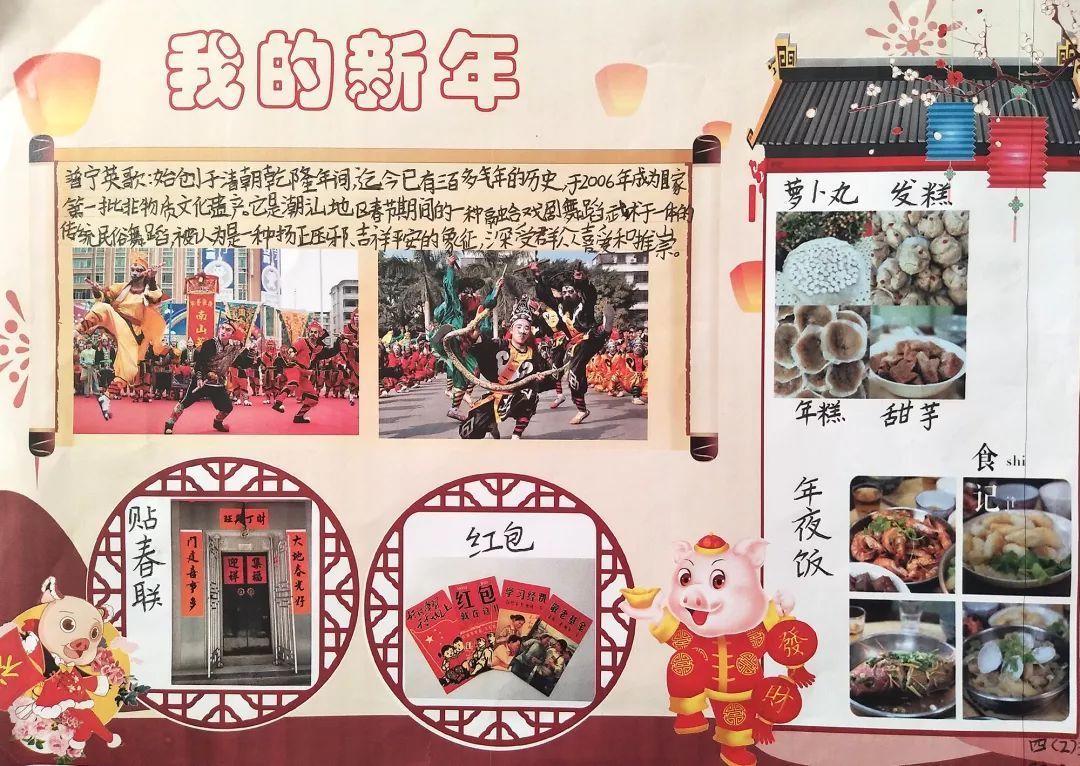 我的新年
普宁英歌:始创于清朝乾隆年间,迄今已有三百多年的历史,于2006年成为国家
第一批非物质文化遗产。它是潮汕地区春节期间的一种融合戏剧舞蹈武术于一体的
传统民俗舞蹈被认为是一种扬正压邪、吉祥平安的象征,深受群众喜爱和推崇。
南山
贴春联
旺丁财
门是喜事多
大地春光好
迎祥
集福
红包
红包
我在这儿
学习经费
敬老基金
發
财
萝卜丸 发糕
年糕 甜芋
食 shi
记 ji
年夜饭
四(2)